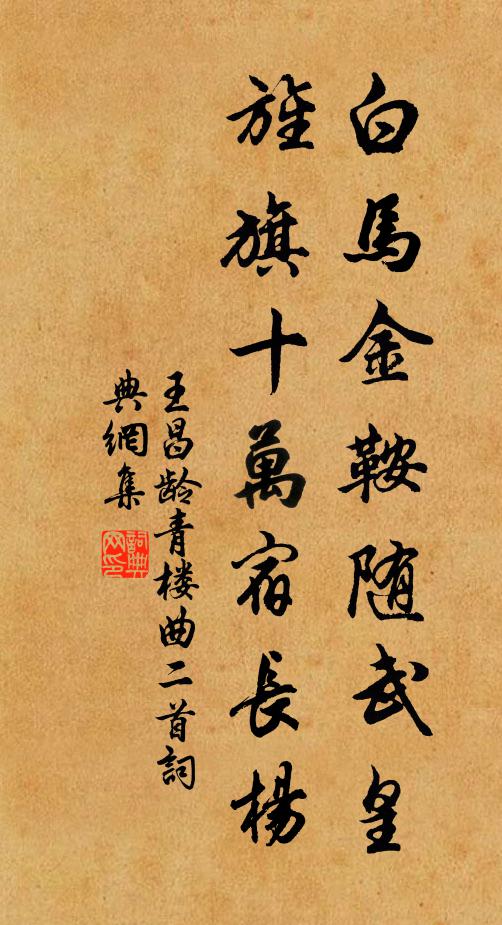 白馬金鞍随武皇
旌旗十萬宿長楊
王昌龄青楼曲二首詞
典網集
詞典网印